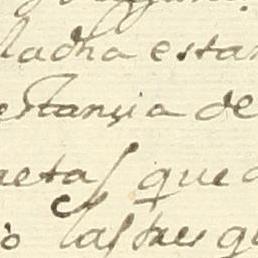 ladha estan
estançia de
netas que
las tres q